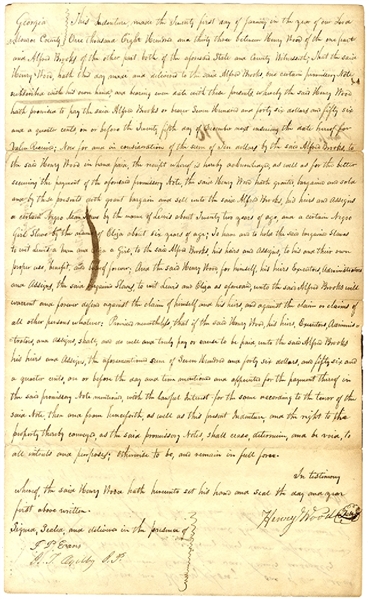 Georgia } This Indenture, made the Twenty first day of January in the year of our Lord
County } One thousand Eight Hundred and thirty three between Henry Wood of the one part
and Alfred Brooks of the other part both of the aforesaid State and County Witnesseth; That the said
Henry Wood, hath this day made and delivered to the said Alfred Brooks one certain promissory Note
subscribed with his own hand, and bearing even date with these presents whereby the said Henry Wood
hath promised to pay the said Alfred Brooks or bearer Seven Hundred and forty six dollars and fifty six
and a quarter cents, on or before the Twenty fifth day of December next ensuing the date hereof for
Value Received; Now for and in consideration of the sum of Ten dollars by the said Alfred Brooks to
the said Henry Wood in hand paid, the receipt whereof is hereby acknowledged, as well as for the better
securing the payment of the aforesaid promissory Note, the said Henry Wood hath granted, bargained and sold
and by these presents doth grant bargain and sell unto the said Alfred Brooks, his heirs and Assigns
a certain Negro Man by the name of Lewis about Twenty two years of age, and a certain Negro
Girl Slave by the name of Eliza about six years of age; To have and to hold the said bargained Slaves
to wit Lewis a man and Eliza a Girl, to the said Alfred Brooks, his heirs and Assigns, to his and their own
proper use, benefit, and behoof forever. And the said Henry Wood for himself, his heirs Executors, Administrators
and Assigns, the said bargained Slaves, to wit Lewis and Eliza as aforesaid, unto the said Alfred Brooks will
warrant and forever defend against the claim of himself and his heirs, and against the claim or claims of
all other persons whatever: Provided nevertheless, that if the said Henry Wood, his heirs, Executors Adminis-
trators and Assigns, shall, and do well and truly pay or cause to be paid, unto the said Alfred Brooks
his heirs and Assigns, the aforementioned sum of Seven Hundred and forty six dollars, and fifty six and
a quarter cents, on or before the day and time mentioned and appointed for the payment thereof in
the said promissory Note mentioned, with the lawful Interest for the same according to the tenor of the
said Note, then and from henceforth, as well as this present Indenture, and the right to the
property thereby conveyed, as the said promissory Note, shall cease, determine, and be void, to
all intents and purposes; otherwise to be, and remain in full force.
In testimony
whereof, the said Henry Wood hath hereunto set his hand and seal the day and year
first above written.
Signed, Sealed, and delivered in the presence of
Henry Wood
Evans
J. P.